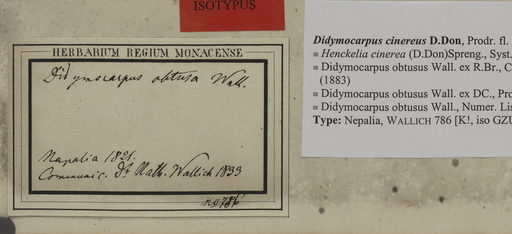 ISOTYPUS
HERBARIUM REGIUM MONACENSE
Didymocarpus obtusa Wall.
Napalia 1821.
Communic. Dr Nath. Wallich 1833
no 786
Didymocarpus cinereus D.Don, Prodr. fl.
≡ Henckelia cinerea (D.Don)Spreng., Syst.
= Didymocarpus obtusus Wall. ex R.Br., C
(1883)
= Didymocarpus obtusus Wall. ex DC., Pro
= Didymocarpus obtusus Wall., Numer. Lis
Type: Nepalia, WALLICH 786 [K!, iso GZU